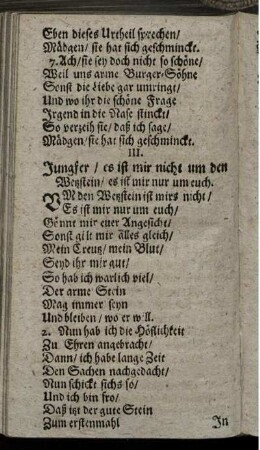 Eben dieses Urtheil sprechen/
Mädgen/ sie hat sich geschminckt.
7. Ach/ sie sey doch nicht so schöne/
Weil uns arme Burger-Söhne
Sonst die Liebe gar umringt/
Und wo ihr die schöne Frage
Irgend in die Nase stinckt/
So verzeih sie/ daß ich sage/
Mädgen/ sie hat sich geschminckt.
III.
Jungfer/ es ist mir nicht um den
Wetzstein/ es ist mir nur um euch.
UM den Wetzstein ist mirs nicht/
Es ist mir nur um euch/
Gönnt mir euer Angesicht/
Sonst gilt mir alles gleich/
Mein Creutz/ mein Blut/
Seyd ihr mir gut/
So hab ich warlich viel/
Der arme Stein
Mag immer seyn
Und bleiben/ wo er will.
2. Nun hab ich die Höflichkeit
Zu Ehren angebracht/
Dann/ ich habe lange Zeit
Den Sachen nachgedacht/
Nun schickt sichs so/
Und ich bin fro/
Daß itzt der gute Stein
Zum erstenmahl
In